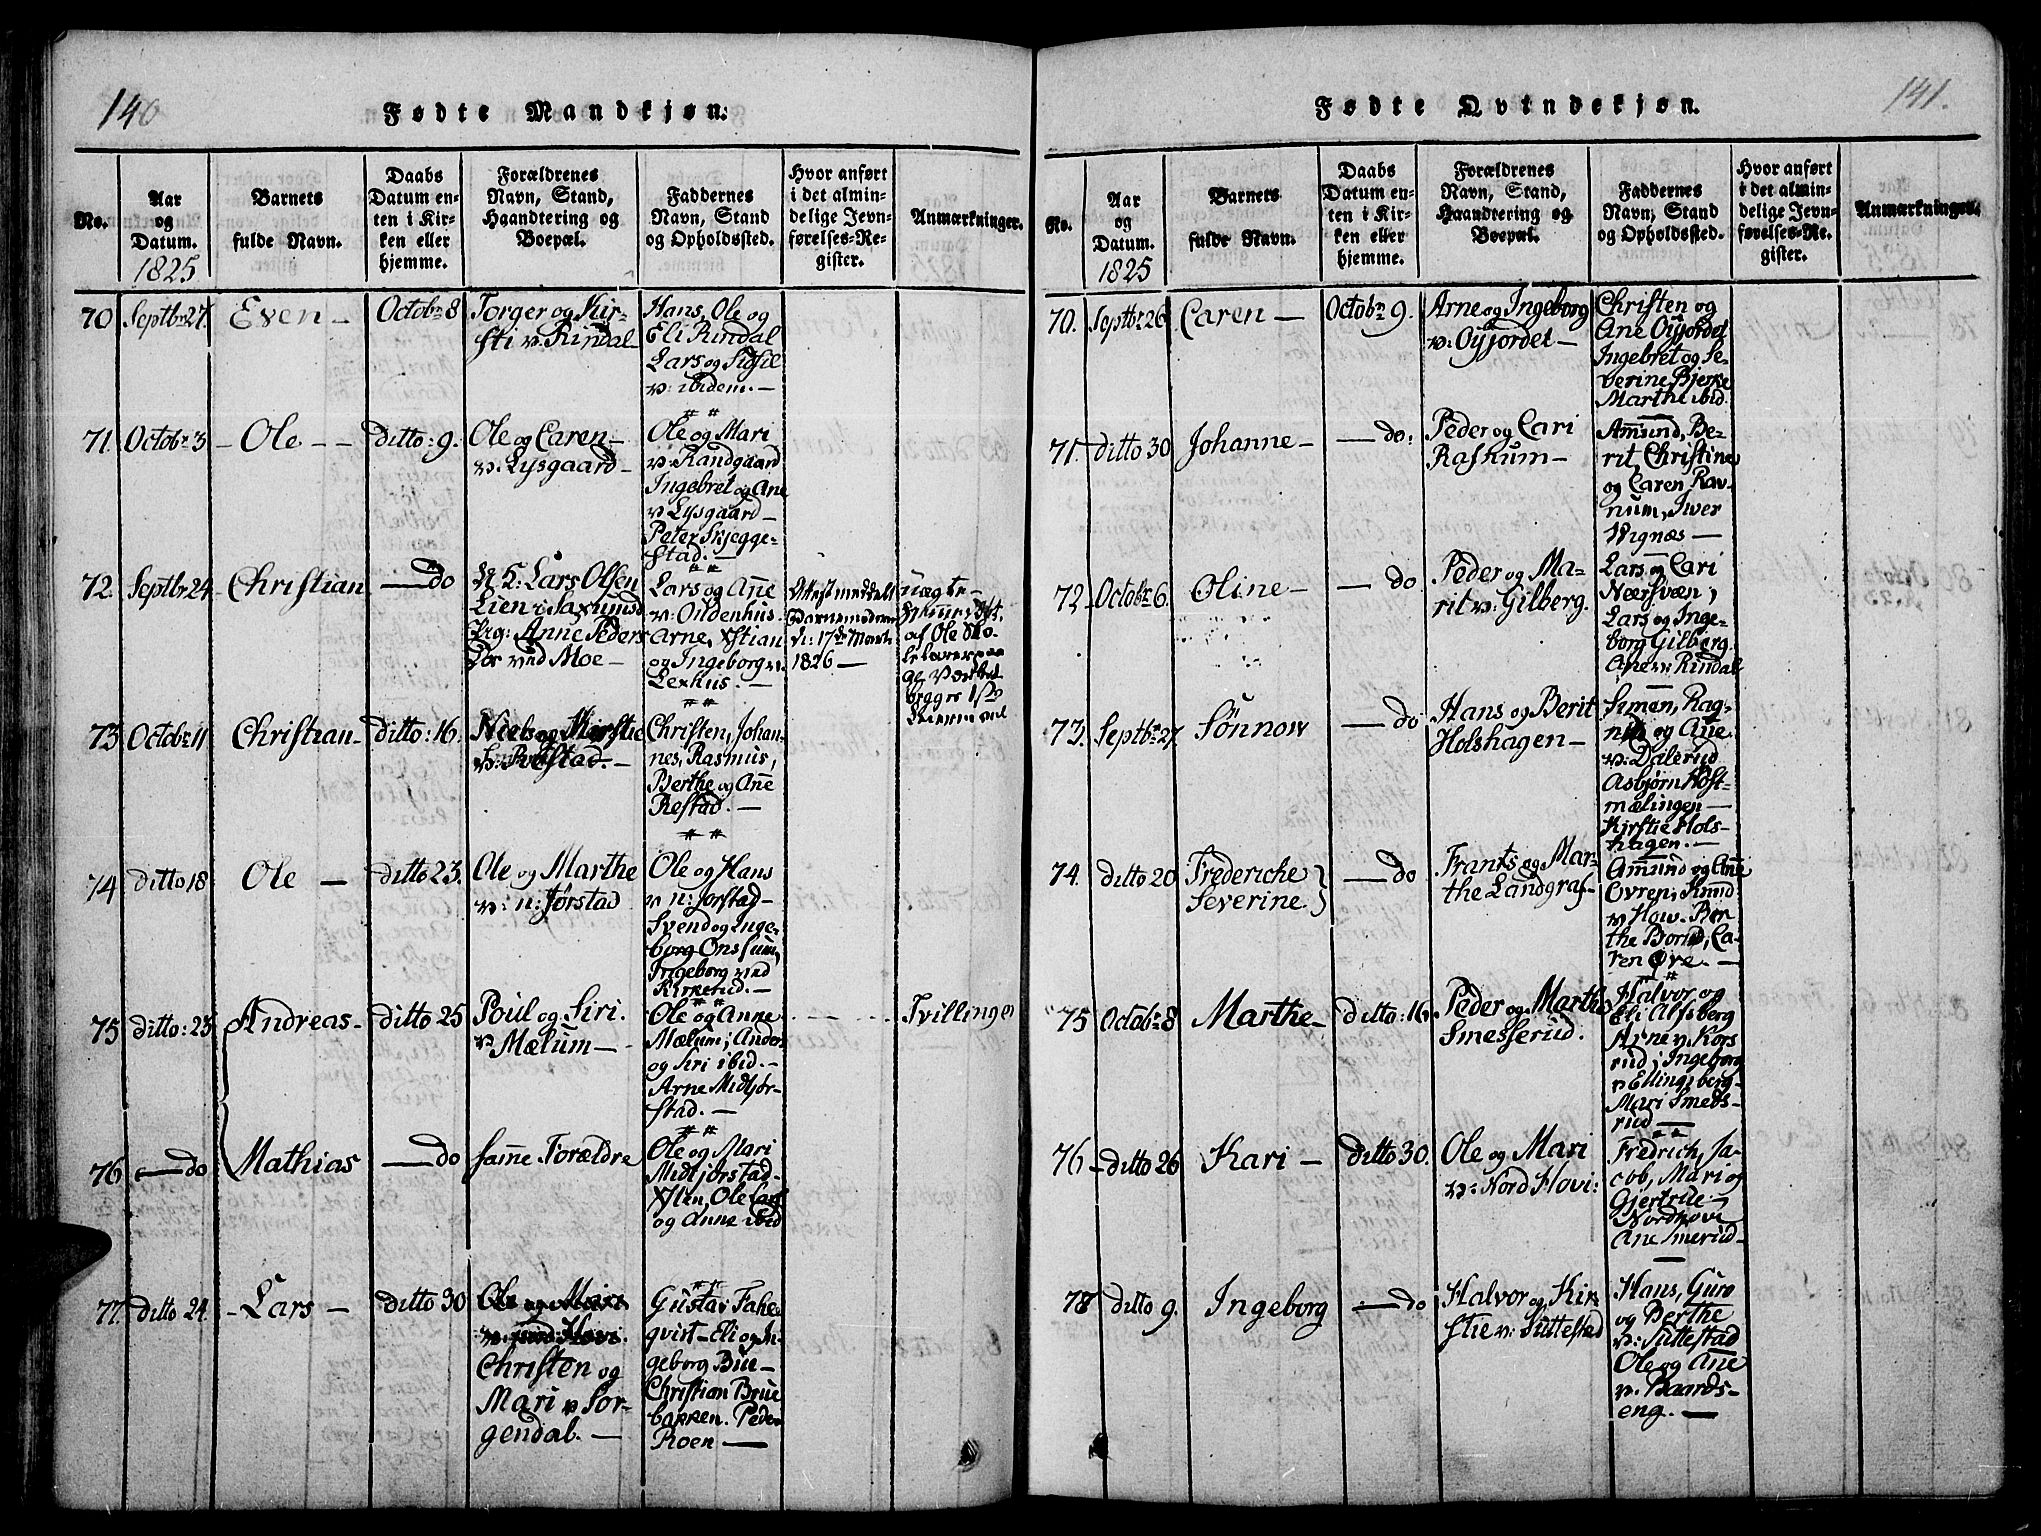 140
Fødte Mandkjøn.
No.
Aar
og
Datum.
1825
Barnets
fulde Navn.
Daabs
Datum en-
ten i Kir-
ken eller
hjemme.
Forældrenes
Navn, Stand,
Haandtering og
Boepæl.
Faddernes
Navn, Stand
og Opholdssted.
Hvor anført
i det almin-
delige Jevn-
førelses-Re-
gister.
Anmærkninger.
70
Septbr 27.
Even —
Octobr 8
Torger og Kir-
sti v. Rindal
Hans, Ole og
Eli Rindal
Lars og Sidsil
v: ibidem. —
71.
Octobr 3
- Ole - -
ditto: 9.
Ole og Caren -
v: Lysgaard -
Ole og Mari
v: Randgaard
Ingebret og Ane
v Lysgaard -
Peter Skjegge-
stad. —
72.
Septbr 24
Christian
— do
Lars Olsen
Lien i Saxumsd
Anne Peders
Dor ved Moe -
Lars og Anne
v: Oldenhus.
Arne, Xstian
og Ingeborg v.
Lexhus. —
Attest meddelt
Barnemoderen
d: 17de Marts
1826 —
uægte
af Ole
73
Octobr 11
Christian -
ditto: 16.
Niels og Kirstie
v: Restad. —
Christen, Johan-
nes, Rasmus,
Berthe og Ane
Restad. —
74
ditto 18
Ole —
ditto 23.
Ole og Marthe
v: n: Jørstad
Ole og Hans
v n: Jorstad -
Svend og Inge-
borg Onssum,
Ingeborg ved
Kirkerud. —
75
ditto: 23
Andreas -
ditto 25
Poul og Siri.
v Mælum —
Ole og Anne
Mælum; Ander
og Siri ibid. —
Arne Midtjør-
stad. —
Tvillinger
76
— do
Mathias
— do
samme Forældre
Ole og Mari
Midtjorstad -
Xsten, Ole Lars
og Anne ibid
77.
ditto 24.
- Lars -
ditto 30
Ole og Mari
v. nord: Hovi.
Christen og
Mari v Sor-
gendal. —
Gustav Fahe
qvist - Eli og In-
geborg Bue -
Christian Brue
bakken. Peder
Roen —
141.
Fødte Qvindekjøn.
No.
Aar
og
Datum.
1825
Barnets
fulde Navn.
Daabs
Datum en-
ten i Kir-
ken eller
hjemme.
Forældrenes
Navn, Stand,
Haandtering og
Boepæl.
Faddernes
Navn, Stand
og Opholdssted.
Hvor anført
i det almin-
delige Jevn-
førelses-Re-
gister.
Anmærkninger.
70.
Septbr 26
Caren —
Octobr 9.
Arne og Ingeborg
v: Oyjordet —
Christen og
Ane Oyjordet
Ingebret og Se-
verine Bjerke
Marthe ibid.
71.
ditto 30
Johanne -
— do:
Peder og Cari
Raskum -
Amund, Be-
rit, Christine
og Caren Rav-
num, Iver
Vignæs —
72.
Octobr 6.
Oline -
— do
Peder og Ma-
rit v: Gilberg.
Lars og Cari
Neersvæn,
Lars og Inge-
borg Gilberg.
Ane v: Rindal
73.
Septbr 27.
Sønnow
— do
Hans og Berit
Holshagen -
Simen, Rag-
nild og Ane
v: Dalerud
Asbjørn Host-
mælingen —
Kjrstie Hols-
hagen. —
74.
ditto 20
Frederiche
Severine.
— do
Frants og Mar-
the Landgraf -
Amund og Ane
Ovren, Knud
v How. Ber
the Borud, Ca-
ren Øve. —
75
Octobr 8
Marthe -
ditto: 16
Peder og Marthe
Smesserud.
Halvor og
Eli Alfsberg
Arne v: Kors
rud; Ingeborg
v Ellingsberg -
Mari Smeds-
rud —
76
- ditto 26
Kari —
ditto 30.
Ole og Mari
v: Nord Hovi:
Fredrich, Ja-
cob, Mari og
Gjertrue -
Nordhove
Ane Smerud -
78
ditto 9.
Ingeborg
— do
Halvor og Kir
stie v: Suttestad
Hans, Guro
og Berthe
v: Suttestad
Ole og Ane
v. Baards-
eng. —